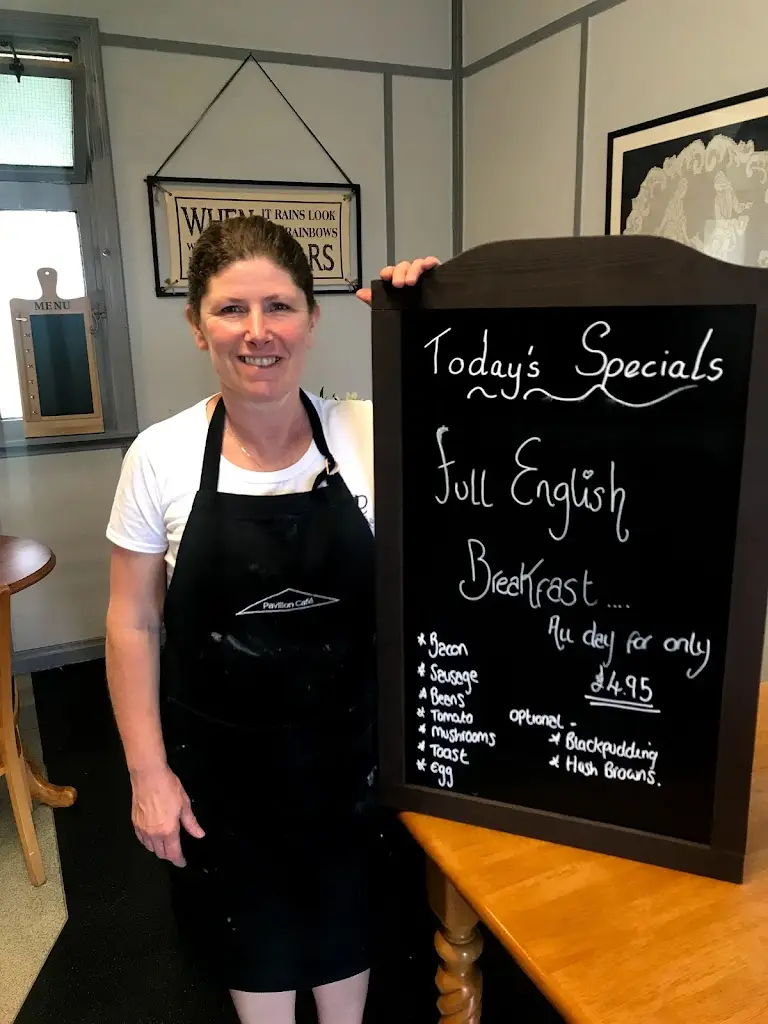 WHEN IT RAINS LOOK
RAINBOWS
MENU
Pavilion Café
Today's Specials
Full English
Breakfast....
All day for only
£4.95
* Bacon
* Sausage
* Beans
* Tomato
* Mushrooms
* Toast
* Egg
Optional -
* Blackpudding
* Hash Browns.